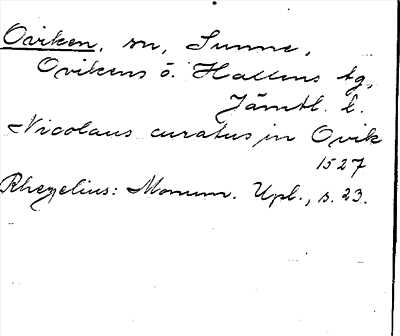 Oviken, sn, Sunne,
Ovikens o. Hallens tg,
Jämtl. l.
Nicolaus curatus in Ovik
1527
Rhezelius: Monum. Upl., s. 23.